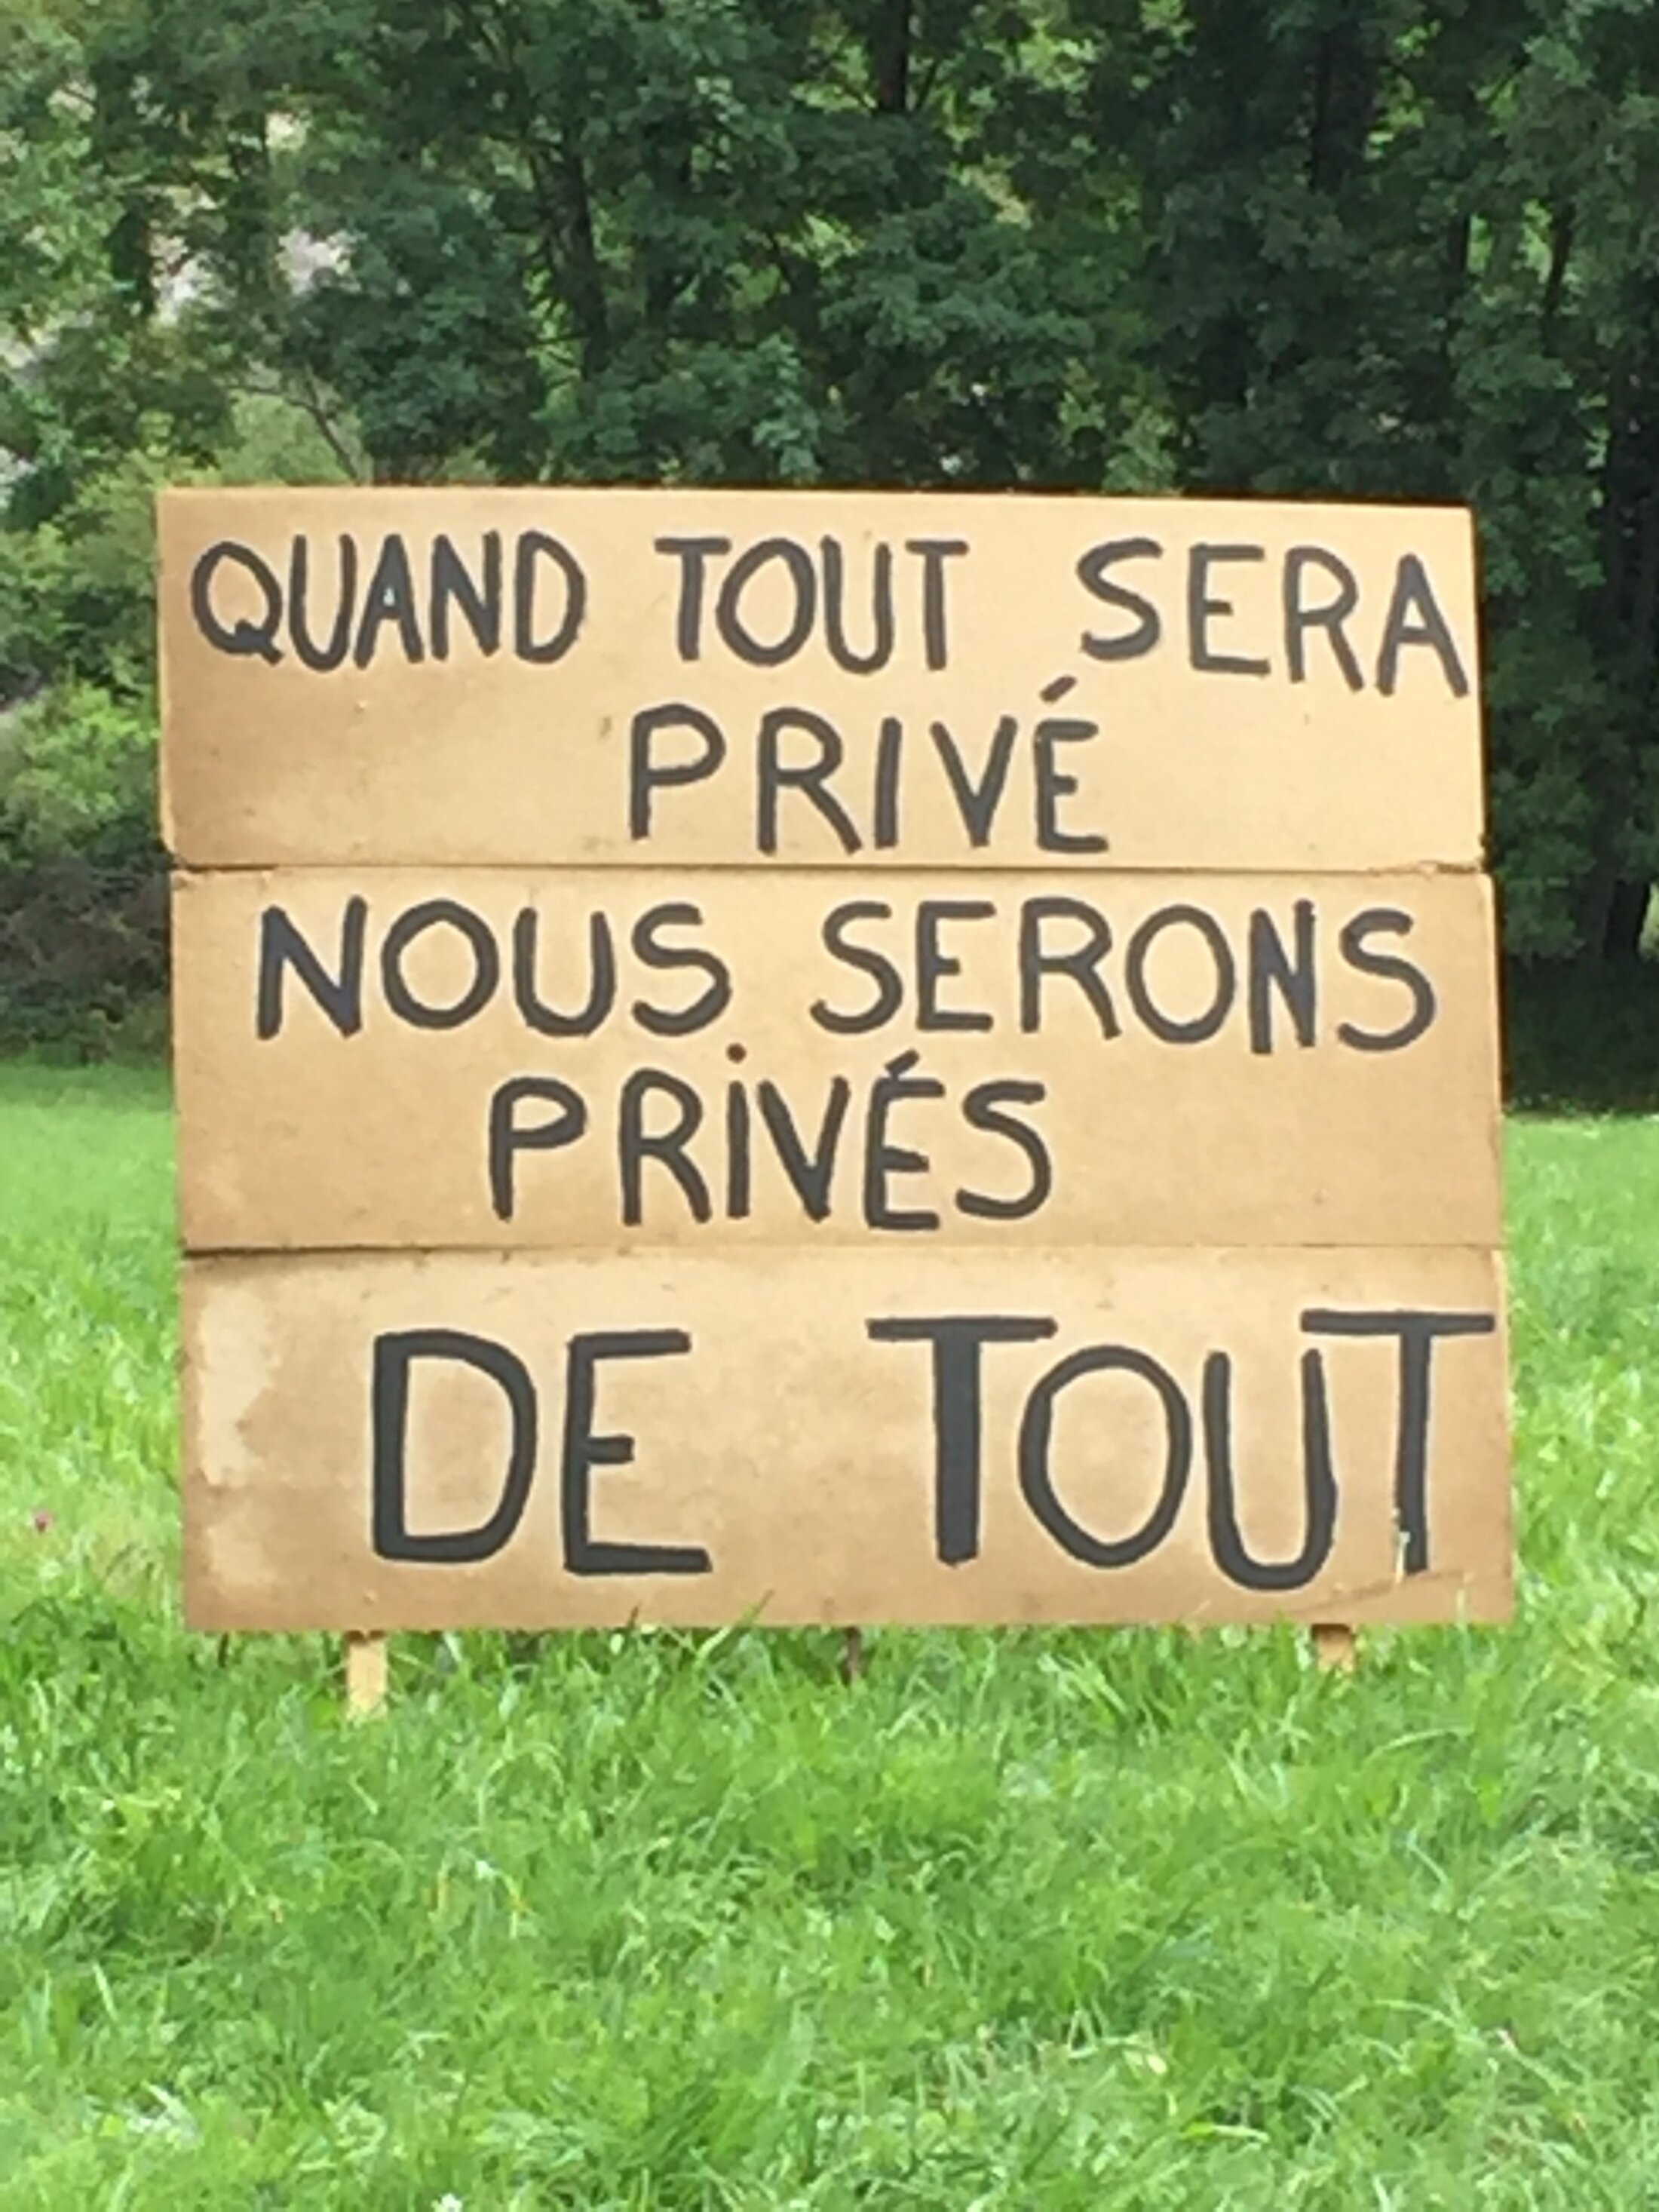 QUAND TOUT SERA
PRIVÉ
NOUS SERONS
PRiVÉS
DE TOUT